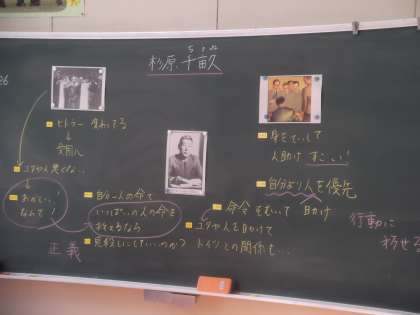 杉原千畝
ちうね
26
ヒトラー 変わってる
↓
ユダヤ人
おかしい!
なんで!
正義
自分一人の命で
いっぱいの人の命を
救えるなら
見殺しにしていいのか?
身をていして
人助け すごい!
自分より人を優先
命令をむしして 助け
ユダヤ人を助けて
ドイツとの関係も…
行動に
移せる